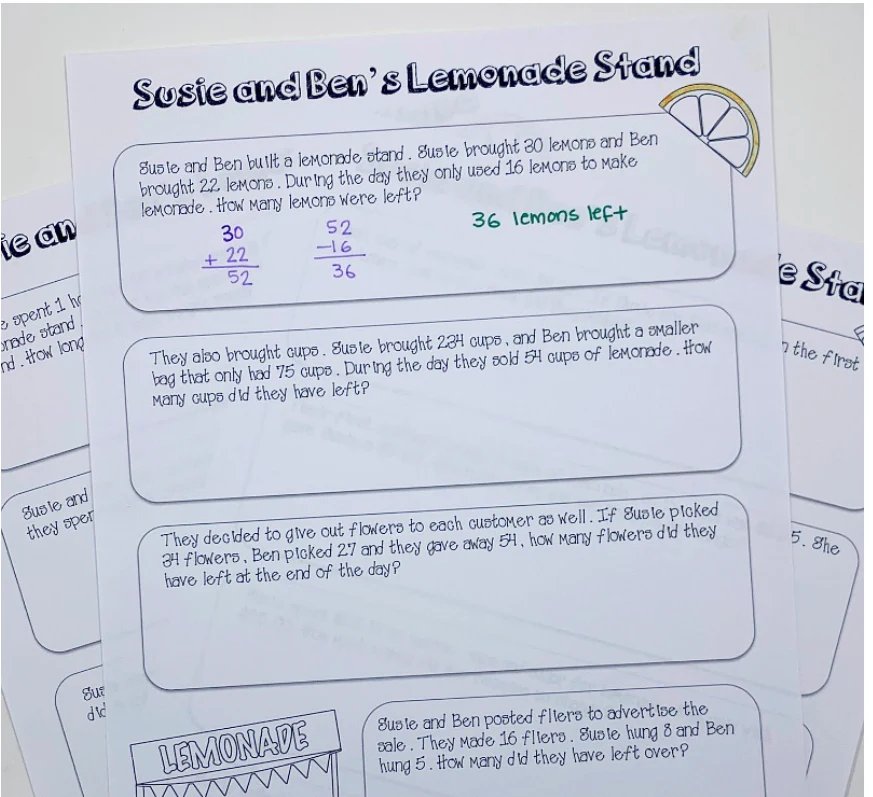 Susie and Ben's Lemonade Stand
Susie and Ben built a lemonade stand. Susie brought 30 lemons and Ben
brought 22 lemons. During the day they only used 16 lemons to make
lemonade. How many lemons were left?
30
+ 22
52
52
-16
36
36 lemons left
They also brought cups. Susie brought 234 cups, and Ben brought a smaller
bag that only had 75 cups. During the day they sold 54 cups of lemonade. How
many cups did they have left?
They decided to give out flowers to each customer as well. If Susie picked
34 flowers, Ben picked 27 and they gave away 54, how many flowers did they
have left at the end of the day?
LEMONADE
Susie and Ben posted fliers to advertise the
sale. They made 16 fliers. Susie hung 8 and Ben
hung 5. How many did they have left over?
spent 1
stand
. How long
Susie and
they
the first
5. She